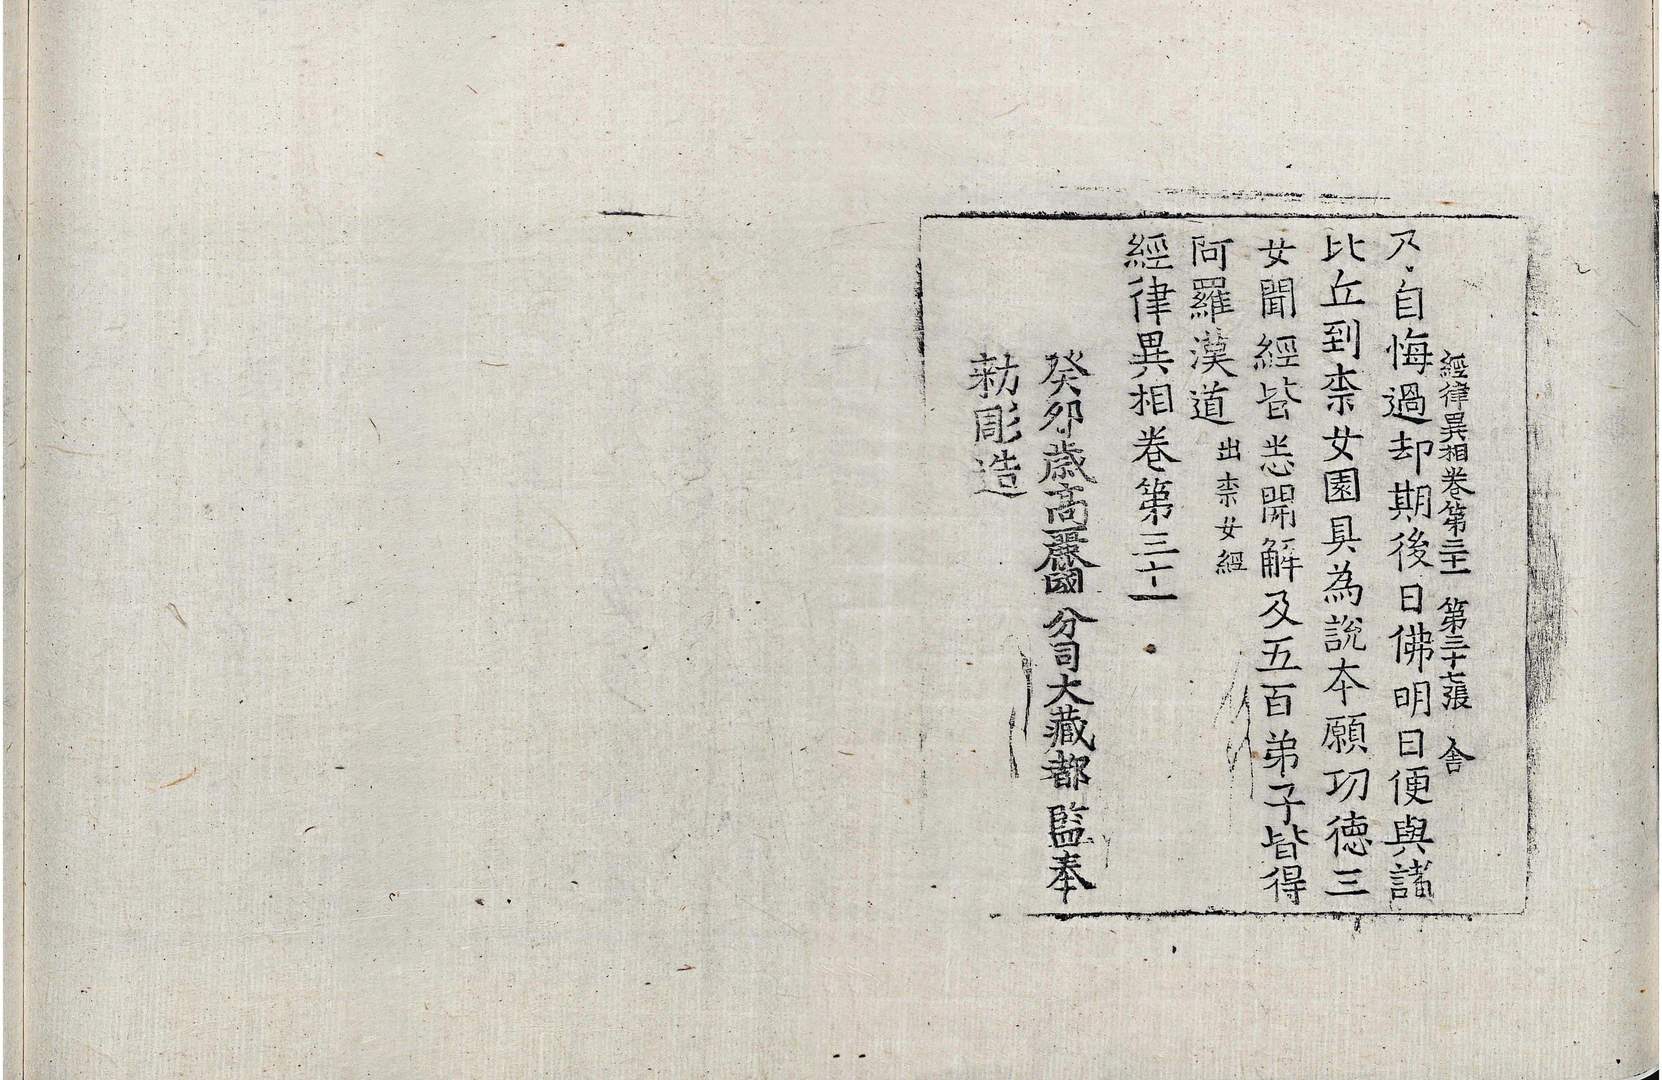 經律異相卷第三十一　第三十七張　舍
乃自悔過却期後日佛明日便與諸
比丘到柰女園具為說本願功德三
女聞經皆悉開解及五百弟子皆得
阿羅漢道出柰女經
經律異相卷第三十一
癸卯歲高麗國分司大藏都監奉
勑彫造